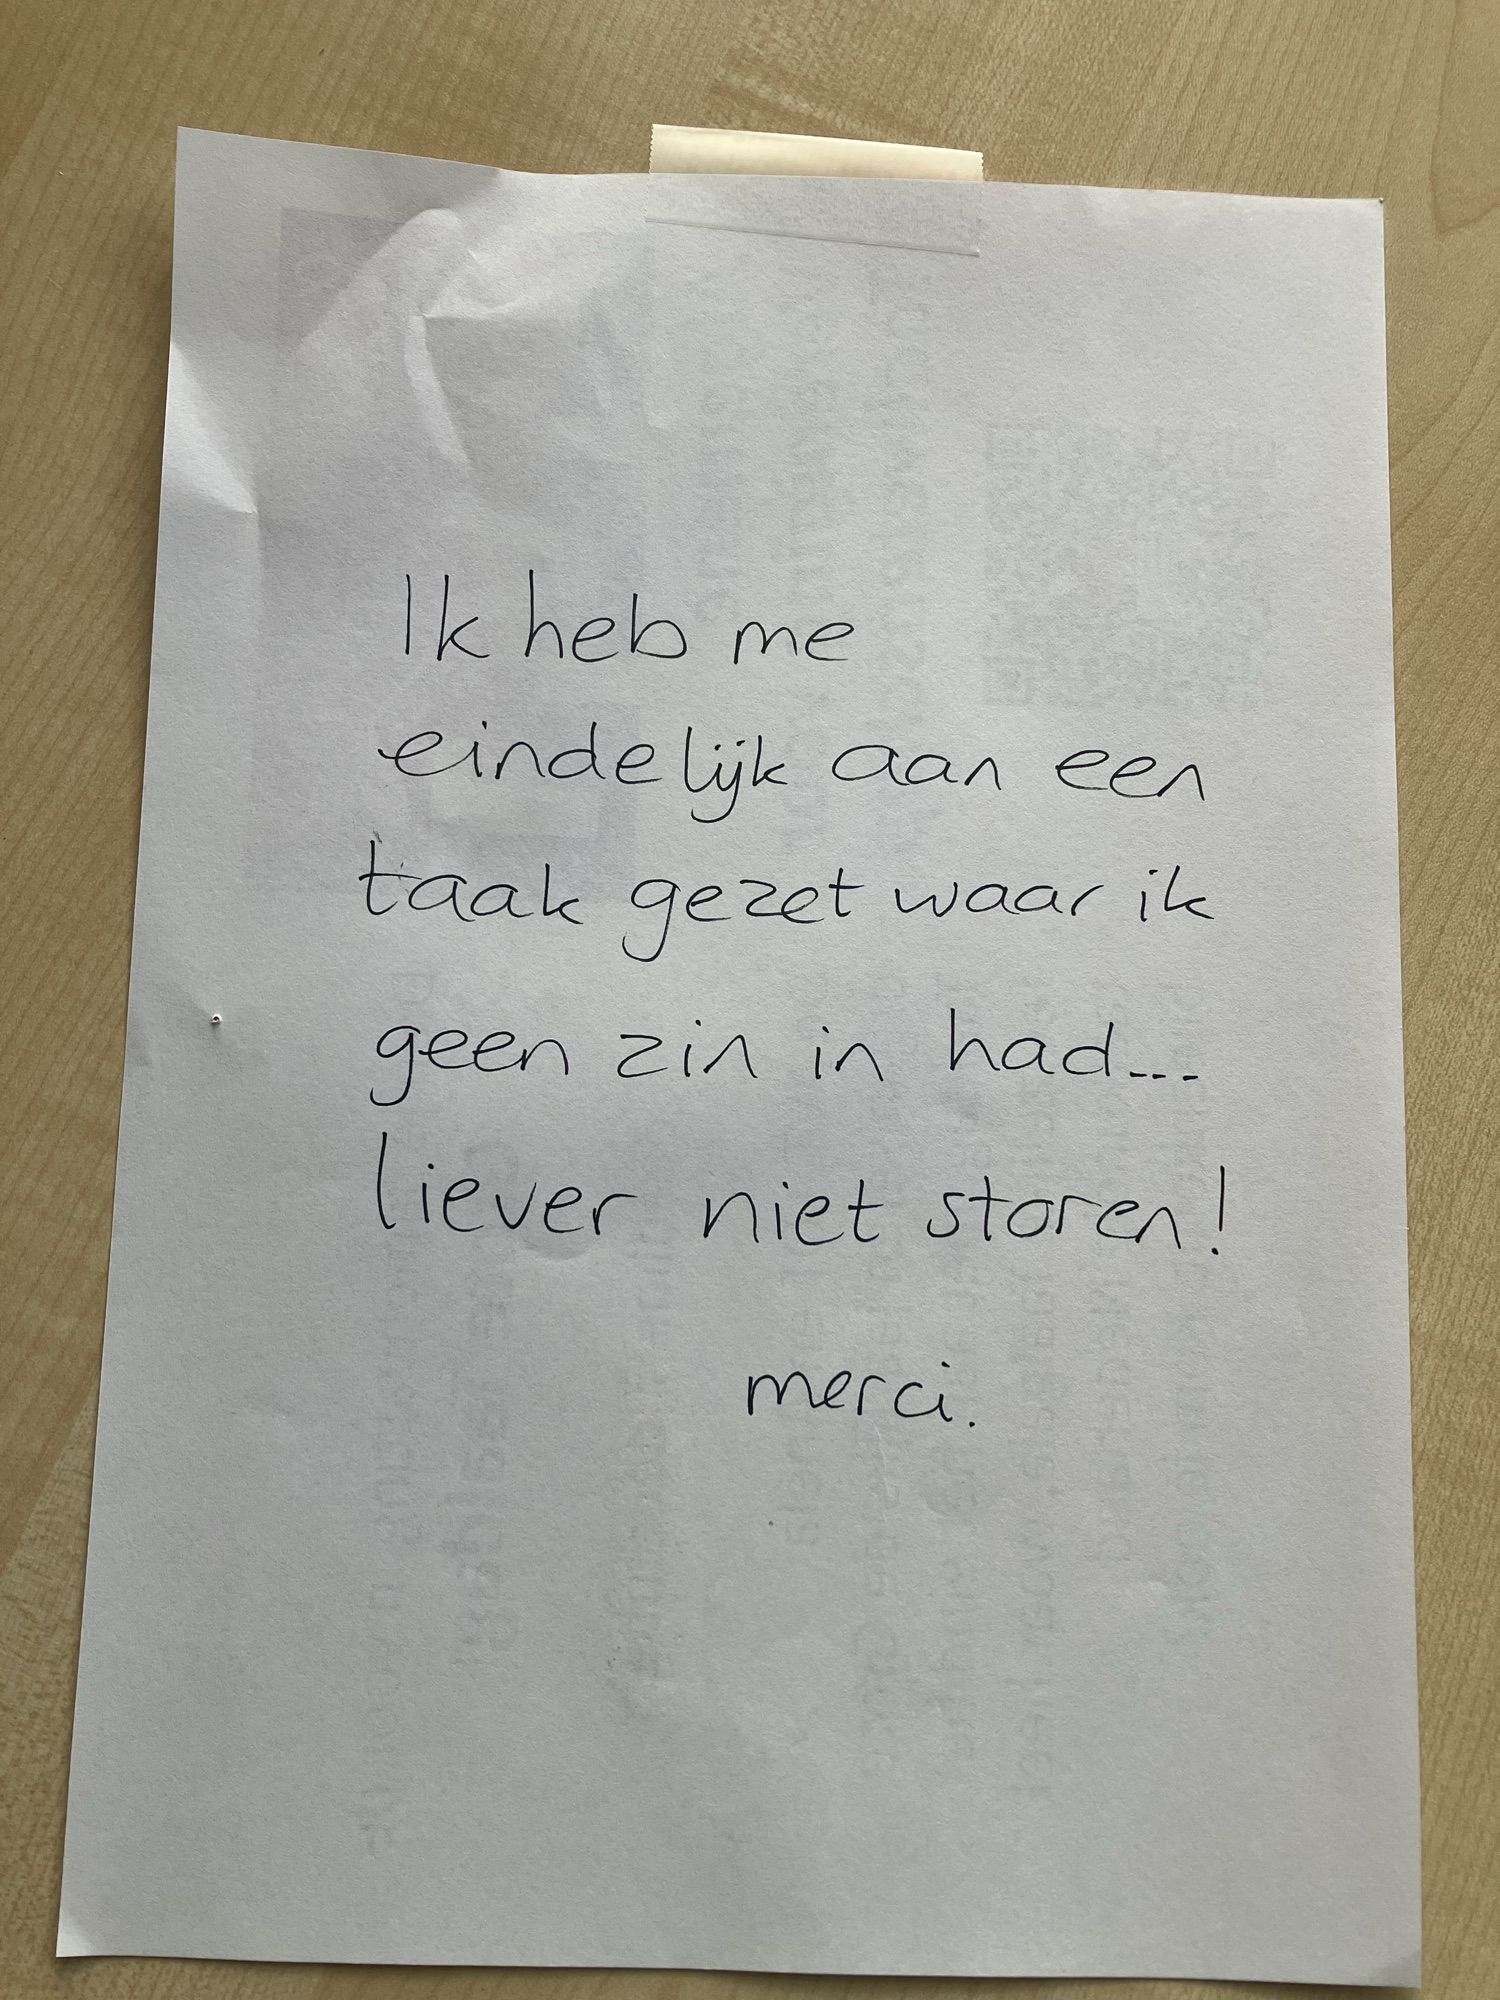 Ik heb me
eindelijk aan een
taak gezet waar ik
geen zin in had...
liever niet storen!
merci.